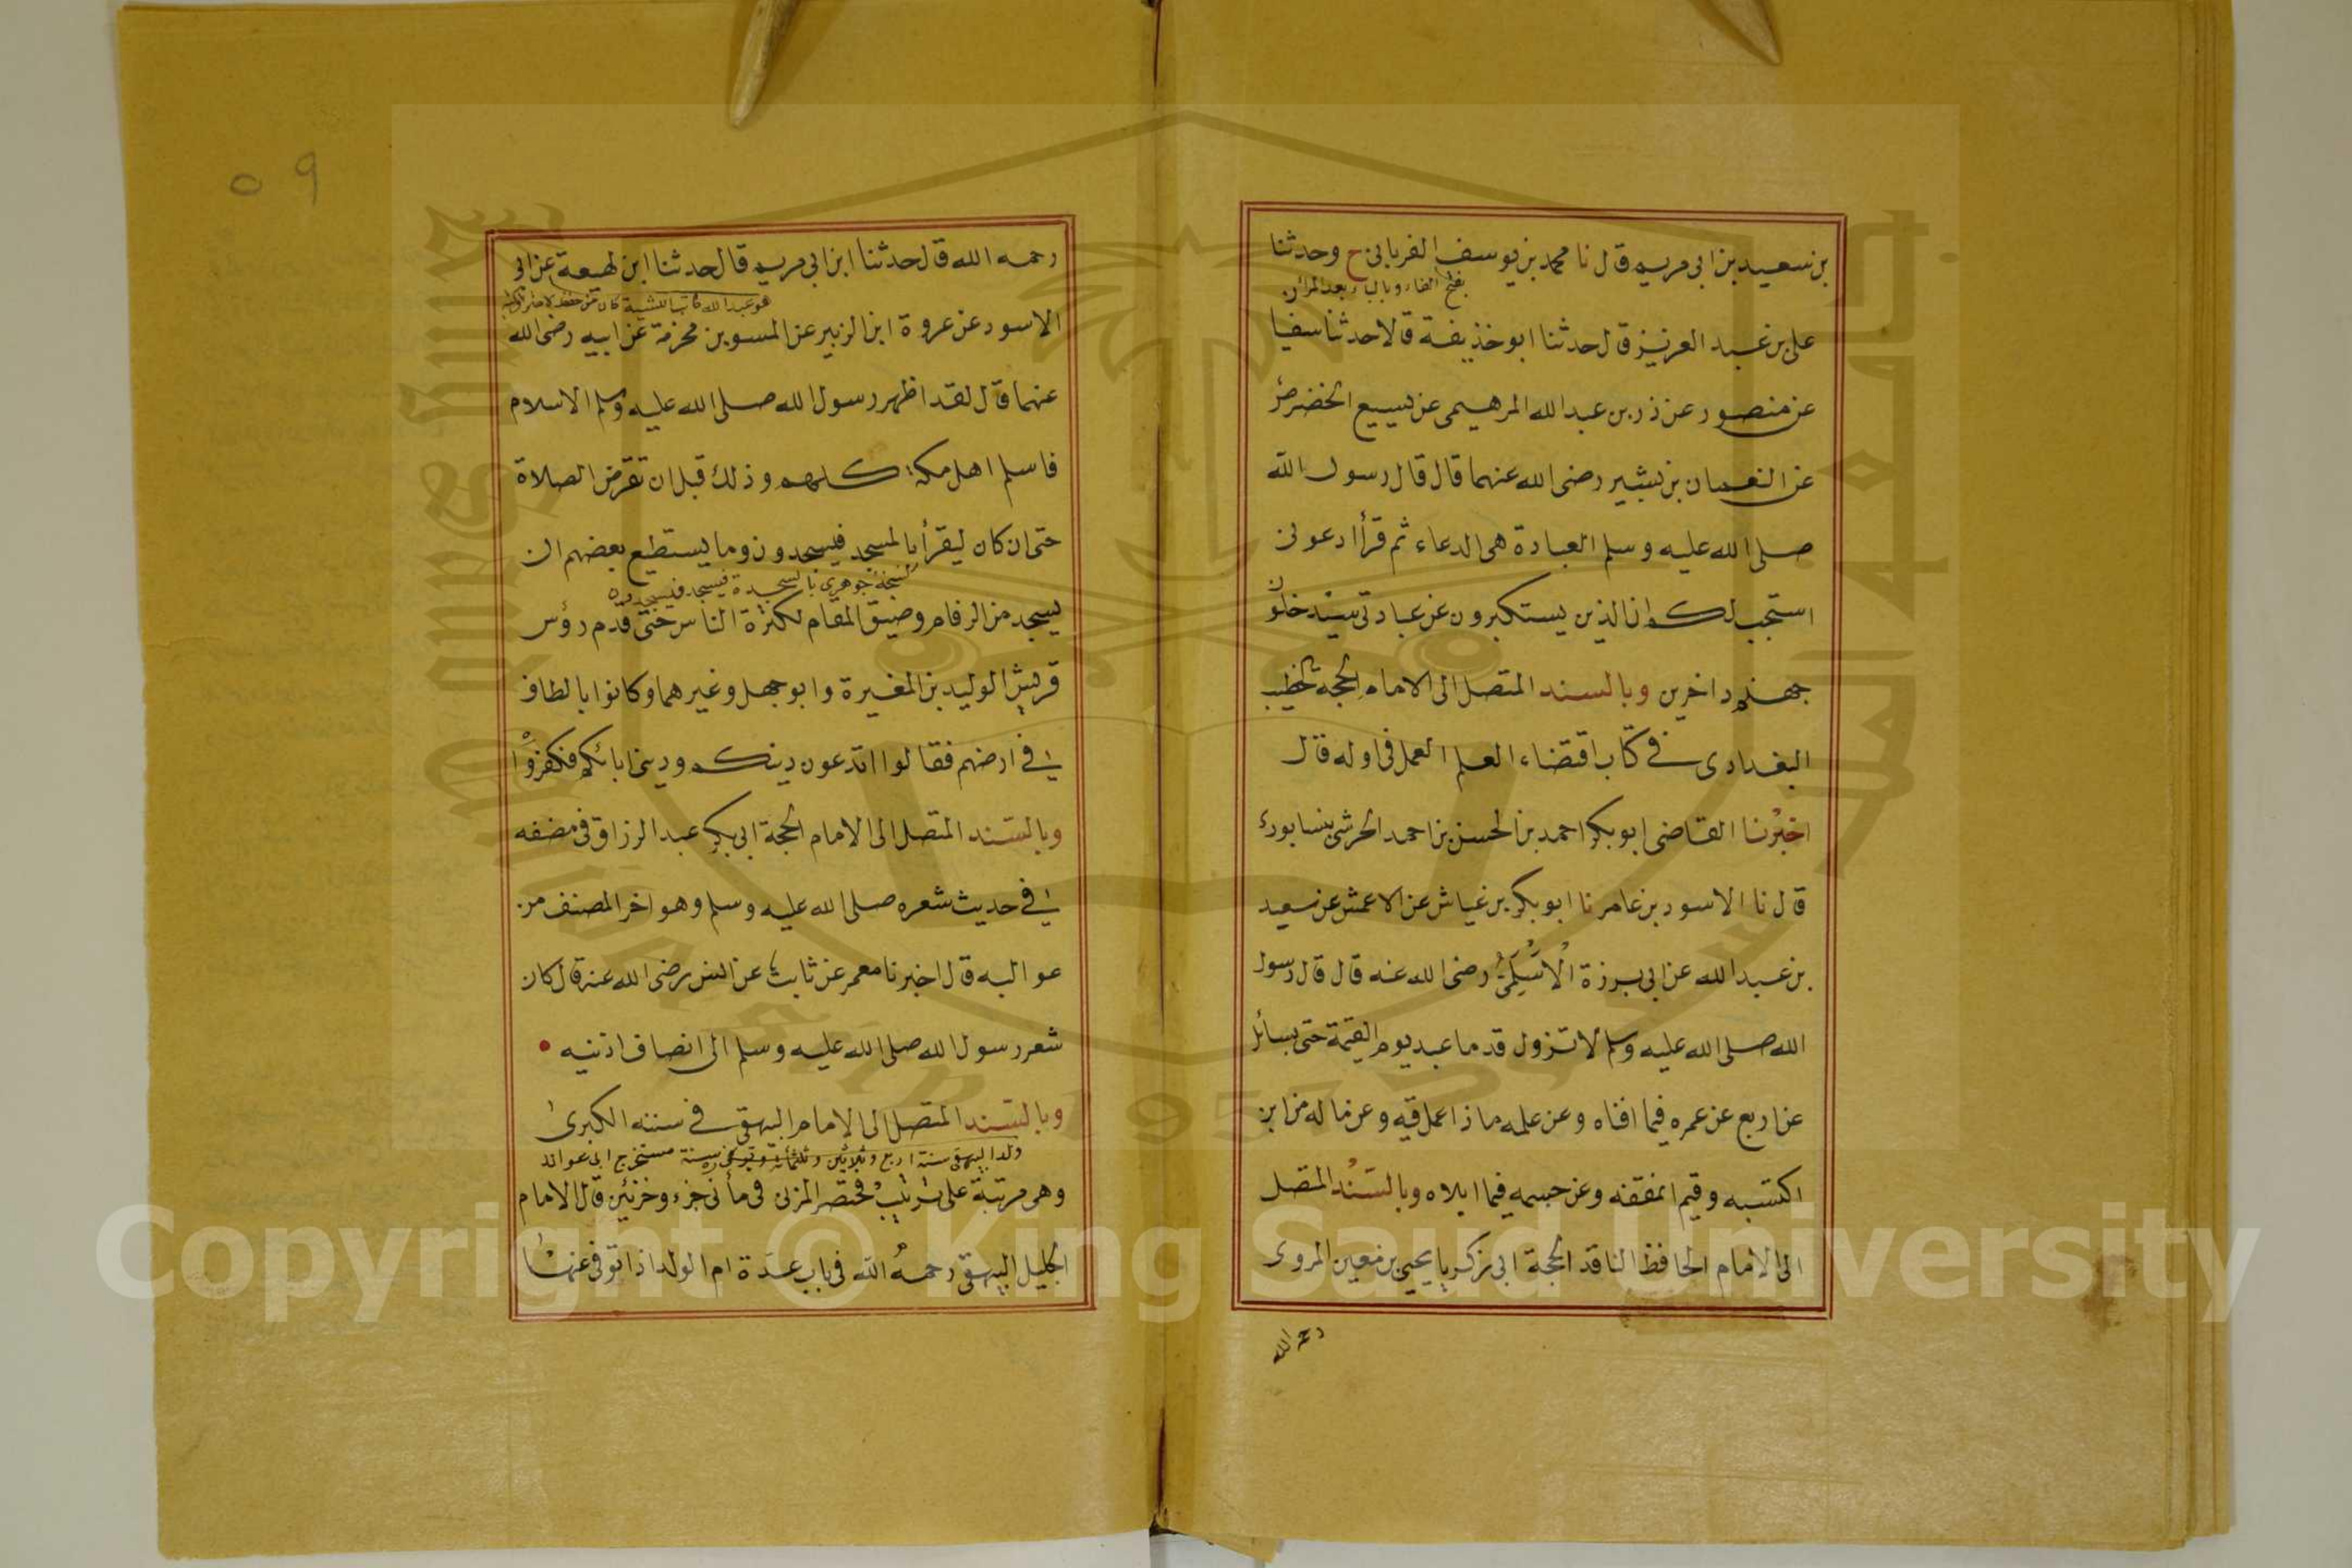 بن سعيد بن ابى مريم قال نا محمد بن يوسف الفريابى ح وحدثنا
بفتح الفاء وبالياء بعد الراء
على بن عبد العزيز قال حدثنا ابو حذيفة قالا حدثنا سفيا
عن منصور عن ذر بن عبد الله المرهبى عن يسيع الحضرمى
عن النعمان بن بشير رضى الله عنهما قال قال رسول الله
صلى الله عليه وسلم العبادة هى الدعاء ثم قرأ ادعونى
استجب لكم ان الذين يستكبرون عن عبادتى سيدخلون
جهنم داخرين وبالسند المتصل الى الامام الحجة الخطيب
البغدادى فى كتاب اقتضاء العلم العمل فى اوله قال
اخبرنا القاضى ابو بكر احمد بن الحسن بن احمد الحرشى بنسابورى
قال نا الاسود بن عامر نا ابو بكر بن عياش عن الاعمش عن سعيد
بن عبد الله عن ابى برزة الاسلمى رضى الله عنه قال قال رسول
الله صلى الله عليه وسلم لا تزول قدما عبد يوم القيمة حتى يسائل
عن اربع عن عمره فيما افناه وعن علمه ماذا عمل فيه وعن ماله من اين
اكتسبه وفيم انفقه وعن جسمه فيما ابلاه وبالسند المتصل
الى الامام الحافظ الناقد الحجة ابى زكريا يحيى بن معين المروى
رحمه الله
٥٩
رحمه الله قال حدثنا ابن ابى مريم قال حدثنا ابن لهيعة عن ابى
هو عبد الله
الاسود عن عروة ابن الزبير عن المسور بن مخرمة عن ابيه رضى الله
عنهما قال لقد اظهر رسول الله صلى الله عليه وسلم الاسلام
فاسلم اهل مكة كلهم وذلك قبل ان تفرض الصلاة
حتى ان كان ليقرأ بالمسجد فيسجدون وما يستطيع بعضهم ان
نسخة جوهرى بالسجدة فيسجد فيسجدون
يسجد من الزفام وضيق المقام لكثرة الناس حتى قدم رؤس
قريش الوليد بن المغيرة وابو جهل وغيرهما وكانوا بالطائف
اى فى ارضهم فقالوا اتدعون دينكم ودين ابائكم فكفروا
وبالسند المتصل الى الامام الحجة ابى بكر عبد الرزاق فى مصنفه
اى فى حديث شعره صلى الله عليه وسلم وهو اخر المصنف من
عواليه قال اخبرنا معمر عن ثابت عن انس رضى الله عنه قال كان
شعر رسول الله صلى الله عليه وسلم الى انصاف اذنيه
وبالسند المتصل الى الامام البيهقى فى سننه الكبرى
ولد البيهقى سنة اربع وثلاثين وثلثمائة سنة مستخرج ابى عوانة
وهى مرتبة على ترتيب مختصر المزنى فى مأتى جزء وخزئين قال الامام
الجليل البيهقى رحمه الله فى باب عدة ام الولد اذا توفى عنها
Copyright © King Saud University